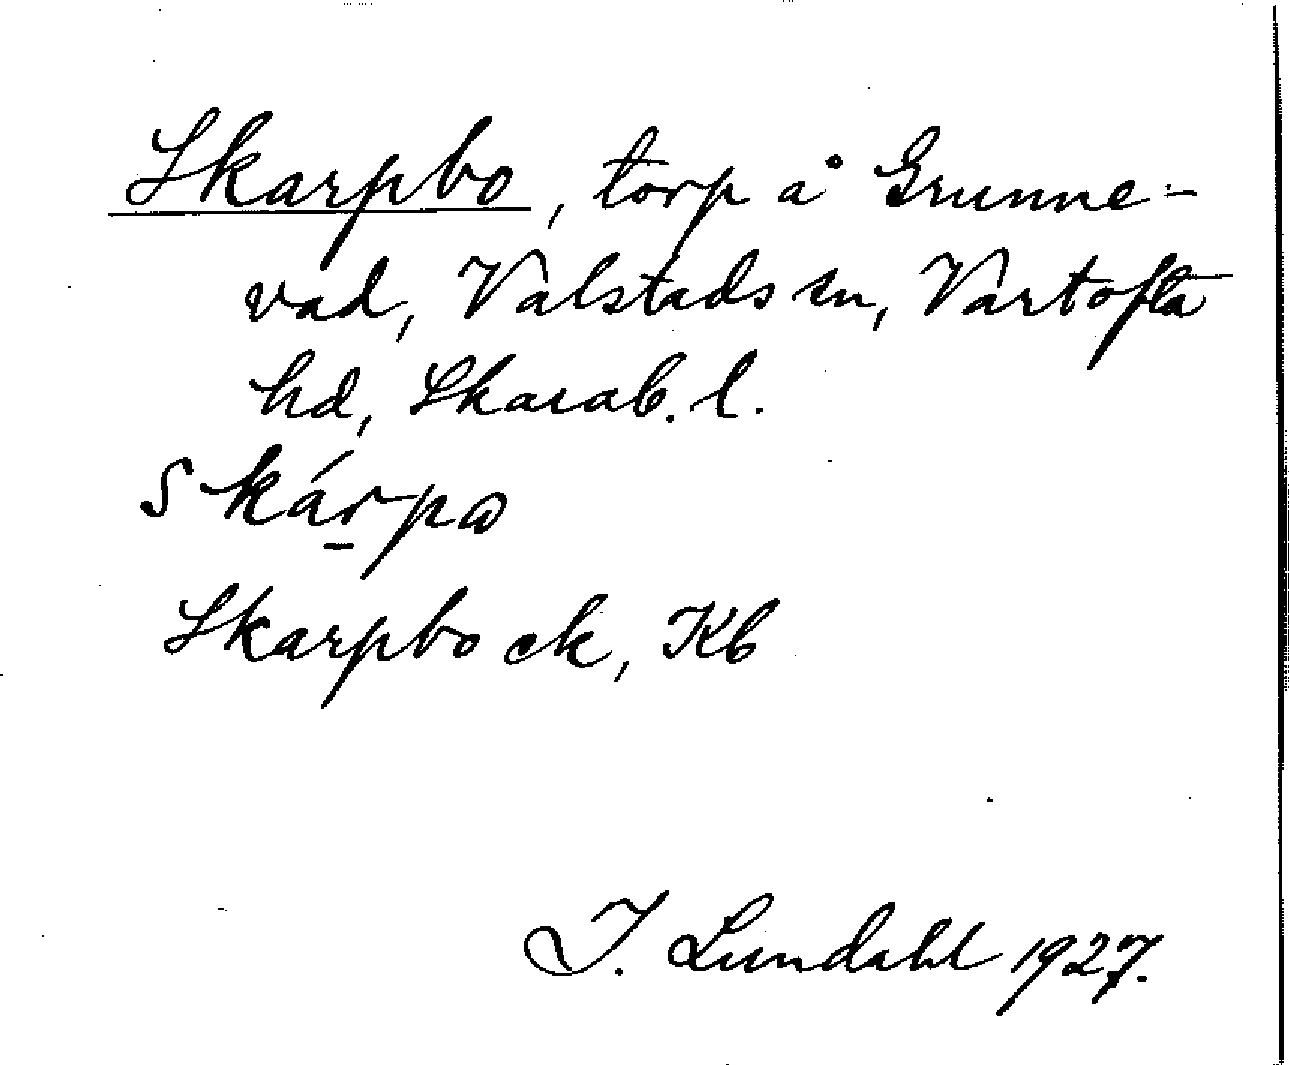 Skarpbo, torp å Grunne-
vad, Valstads sn, Vartofta
hd, Skarab. l.
skárpω
Skarpbo ek, Kb
I. Lundahl 1927.